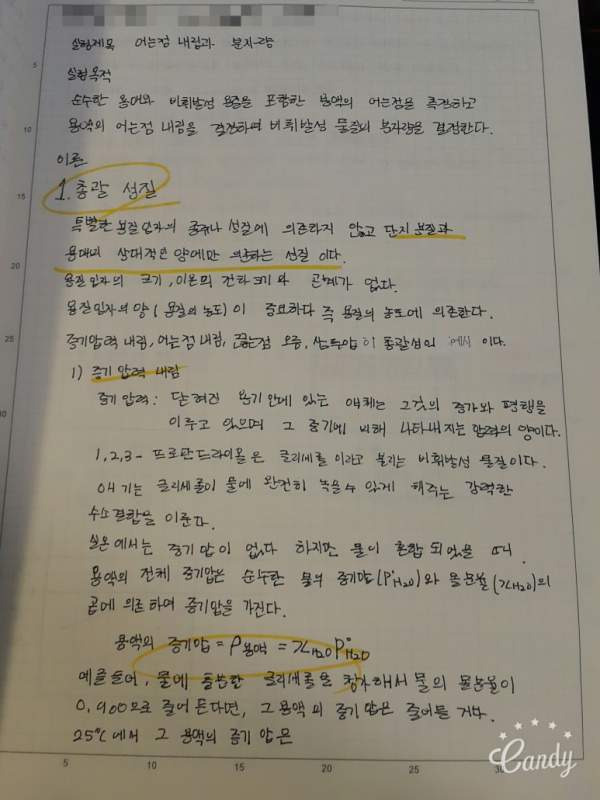 실험제목 어는점 내림과 분자량
실험목적
순수한 용매와 비휘발성 용질을 포함한 용액의 어는점을 측정하고
용액의 어는점 내림을 결정하며 비휘발성 물질의 분자량을 결정한다.
이론
1. 총괄 성질
특별한 용질입자의 종류나 성질에 의존하지 않고 단지 용질과
용매의 상대적인 양에만 의존하는 성질 이다.
용질입자의 크기, 이온의 전하크기와 관계가 없다.
용질입자의 양 (용질의 농도)이 중요하다 즉 용질의 농도에 의존한다.
증기압력 내림, 어는점 내림, 끓는점 오름, 삼투압이 총괄성의 예시 이다.
1) 증기 압력 내림
증기 압력: 닫혀진 용기 안에 있는 액체는 그것의 증기와 평형을
이루고 있으며 그 증기에 의해 나타내지는 압력의 양이다.
1,2,3- 프로판트라이올은 글리세롤 이라고 불리는 비휘발성 물질이다.
OH기는 글리세롤이 물에 완전히 녹을 수 있게 해주는 강력한
수소결합을 이룬다.
실온에서는 증기압이 없다 하지만 물이 혼합 되었을 때
용액의 전체 증기압은 순수한 물의 증기압(P°H2O)와 몰분율(χH2O)의
곱에 의존하여 증기압을 가진다.
용액의 증기압 = P용액 = χH2O P°H2O
예를들어, 물에 충분한 글리세롤을 첨가해서 물의 몰분율이
0.900으로 줄어 든다면, 그 용액의 증기 압은 줄어들 거다.
25℃에서 그 용액의 증기 압은
5
10
15
20
25
30
5
10
15
20
25
30
Candy